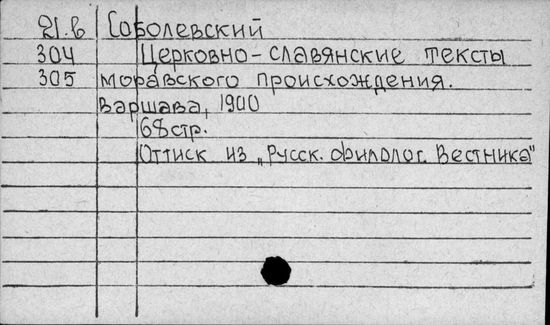 21.в Соболевский
304 Церковно-славянские тексты
305 моравского происхождения.
Варшава, 1900
68 стр.
Оттиск из „Русск. филолог. Вестника"